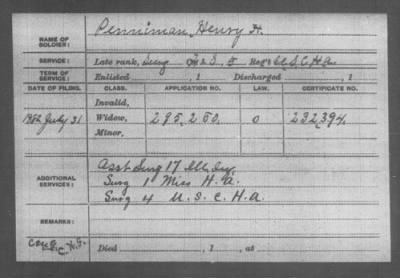 NAME OF SOLDIER: Penniman, Henry H.
SERVICE: Late rank, Surg F & S, 5 Reg't U.S.C.H.A.
TERM OF SERVICE: Enlisted , 1 Discharged , 1
DATE OF FILING. CLASS. APPLICATION NO. LAW. CERTIFICATE NO.
Invalid,
1882 July 31 Widow, 295,250 0 232,394.
Minor,
ADDITIONAL SERVICES: Asst Surg 17 Ill. Inf.
Surg 1 Miss H.A.
Surg 4 U.S.C.H.A.
REMARKS:
Died , 1 , at